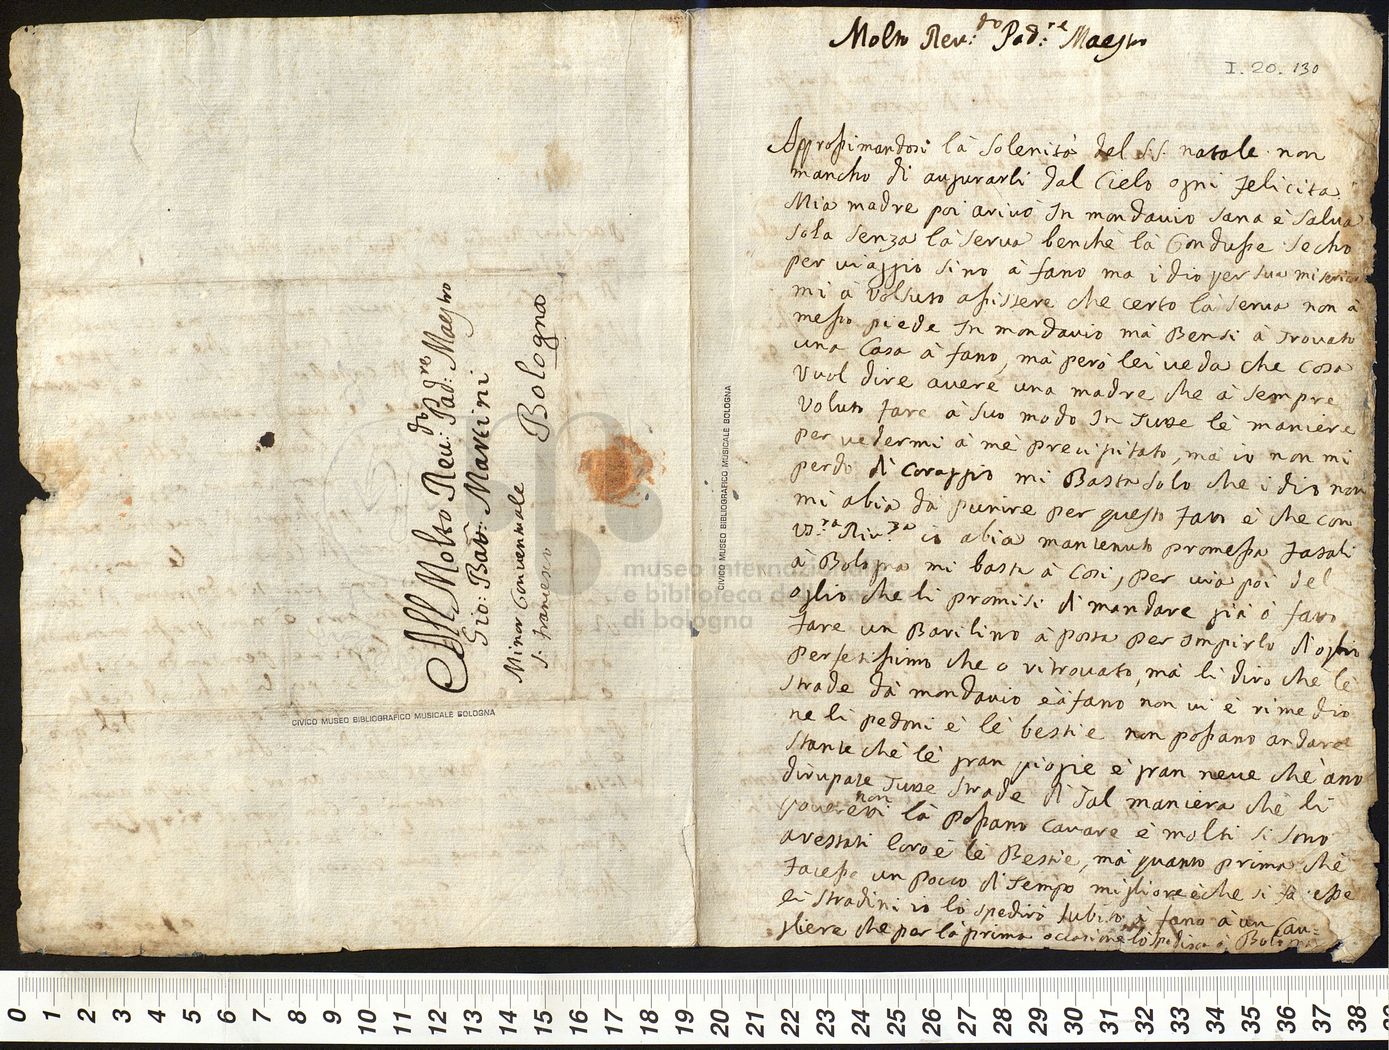 All Molto Reu: do Pad: re Maestro
Gio: Batt: Martini
Minor Conuentuale
S. Francesco Bologna
CIVICO MUSEO BIBLIOGRAFICO MUSICALE BOLOGNA
CIVICO MUSEO BIBLIOGRAFICO MUSICALE BOLOGNA
museo internazionale
e biblioteca della musica
di bologna
Molto Reu: do Pad: re Maestro
I. 20. 130
Approssimandosi là Solenità del S.S. natale non
mancho di augurarli dal Cielo ogni felicita
Mia madre poi arivò In mondauio sana è salua
sola senza là serua benchè là Condusse secho
per uiaggio sino à fano ma idio per sua
mi à Volsuto assistere che certo là serua non à
messo piede In mondauio mà Bensi à trouato
una Casa à fano, mà però lei ueda che Cosa
Vuol dire auere una madre che à sempre
Voluto fare à suo modo In tutte lè maniere
per uedermi à mè precipitato, mà io non mi
perdo di Coraggio mi Basta solo che idio non
mi abia dà punire per questo fato è che con
Vo:ra Riu:za io abia mantenuto promessa fatali
à Bologna mi basta à Cosi, per uia poi del
oglio che li promisi di mandare già ò fato
fare un Barilino à posta per empirlo di oglio
perfetissimo che o ritrouato, mà li diro che lè
strade dà mondauio è à fano non ui è rimedio
ne li pedoni è lè bestie non possano andare
stante chè lè gran piogie è gran neue chè ano
dirupate tutte strade di tal maniera chè li
poueri non là possano Cauare è molti si sono
arestati loro è lè Bestie, mà quanto prima chè
facesse un pocco di tempo migliore è che si fà
li stradini io lo spedirò subito à fano à un Cau=
gliere che per là prima occasione lo spedisca à Bologna
0 1 2 3 4 5 6 7 8 9 10 11 12 13 14 15 16 17 18 19 20 21 22 23 24 25 26 27 28 29 30 31 32 33 34 35 36 37 38